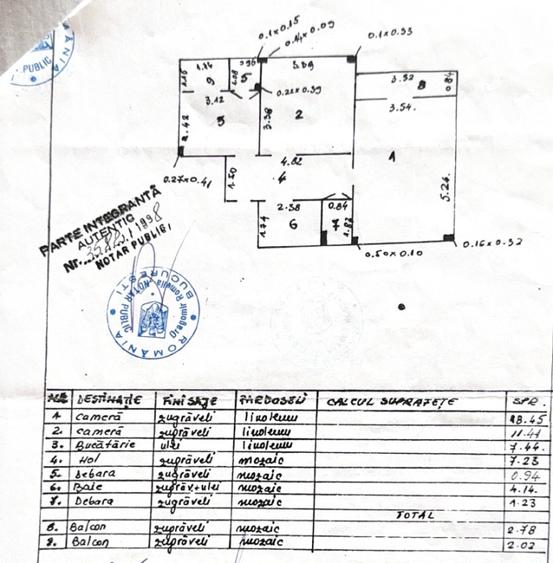 ROMÂNIA
PUBLIC
0.1x0.15
0.14x0.09
0.1x0.33
1.74
0.96
3.39
3.52
8
0.84
1.16
9
5
0.98
3.12
0.21x0.39
3.54.
3
3.38
2
2.42
1
4.82
0.27x0.41
1.50
4
5.26
2.38
0.84
1.74
6
7
1.82
0.50x0.10
0.16x0.32
PARTE INTEGRANTĂ
AUTENTIC
Nr. /1998
NOTAR PUBLIC,
ROMÂNIA
BUCUREȘTI
Dragomir Romelia
NOTAR PUBLIC
NR. DESTINAȚIE FINISAJE PARDOSELI CALCUL SUPRAFEȚE SPR.
1. cameră zugrăveli linoleum 18.45
2. cameră zugrăveli linoleum 11.41
3. Bucătărie ulei linoleum 7.44
4. Hol zugrăveli mozaic 7.23
5. Debara zugrăveli mozaic 0.94
6. Baie zugrăv+ulei mozaic 4.14
7. Debara zugrăveli mozaic 1.23
TOTAL
8. Balcon zugrăveli mozaic 2.78
9. Balcon zugrăveli mozaic 2.02